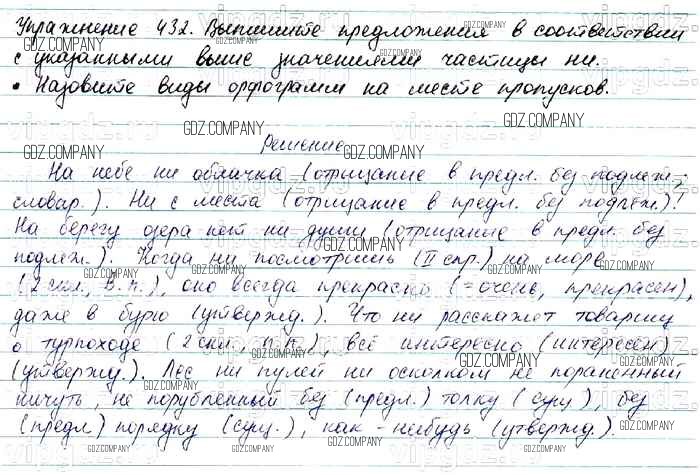 Упражнение 432. Выпишите предложения в соответствии
с указанными выше значениями частицы ни.
• Назовите виды орфограмм на месте пропусков.
Решение
На небе ни облачка (отрицание в предл. без подлеж.;
словар.). Ни с места (отрицание в предл. без подлеж.)!
На берегу озера нет ни души (отрицание в предл. без
подлеж.). Когда ни посмотришь (II спр.) на море
(2 скл., В.п.), оно всегда прекрасно (=очень, прекрасен),
даже в бурю (утвержд.). Что ни расскажет товарищ
о турпоходе (2 скл. П.п.), всё интересно (интересен)
(утвержд.). Лес ни пулей ни осколком не пораненный
ничуть, не порубленный без (предл.) толку (сущ.), без
(предл.) порядку (сущ.), как-нибудь (утвержд.).
GDZ.COMPANY
vipgdz.ru